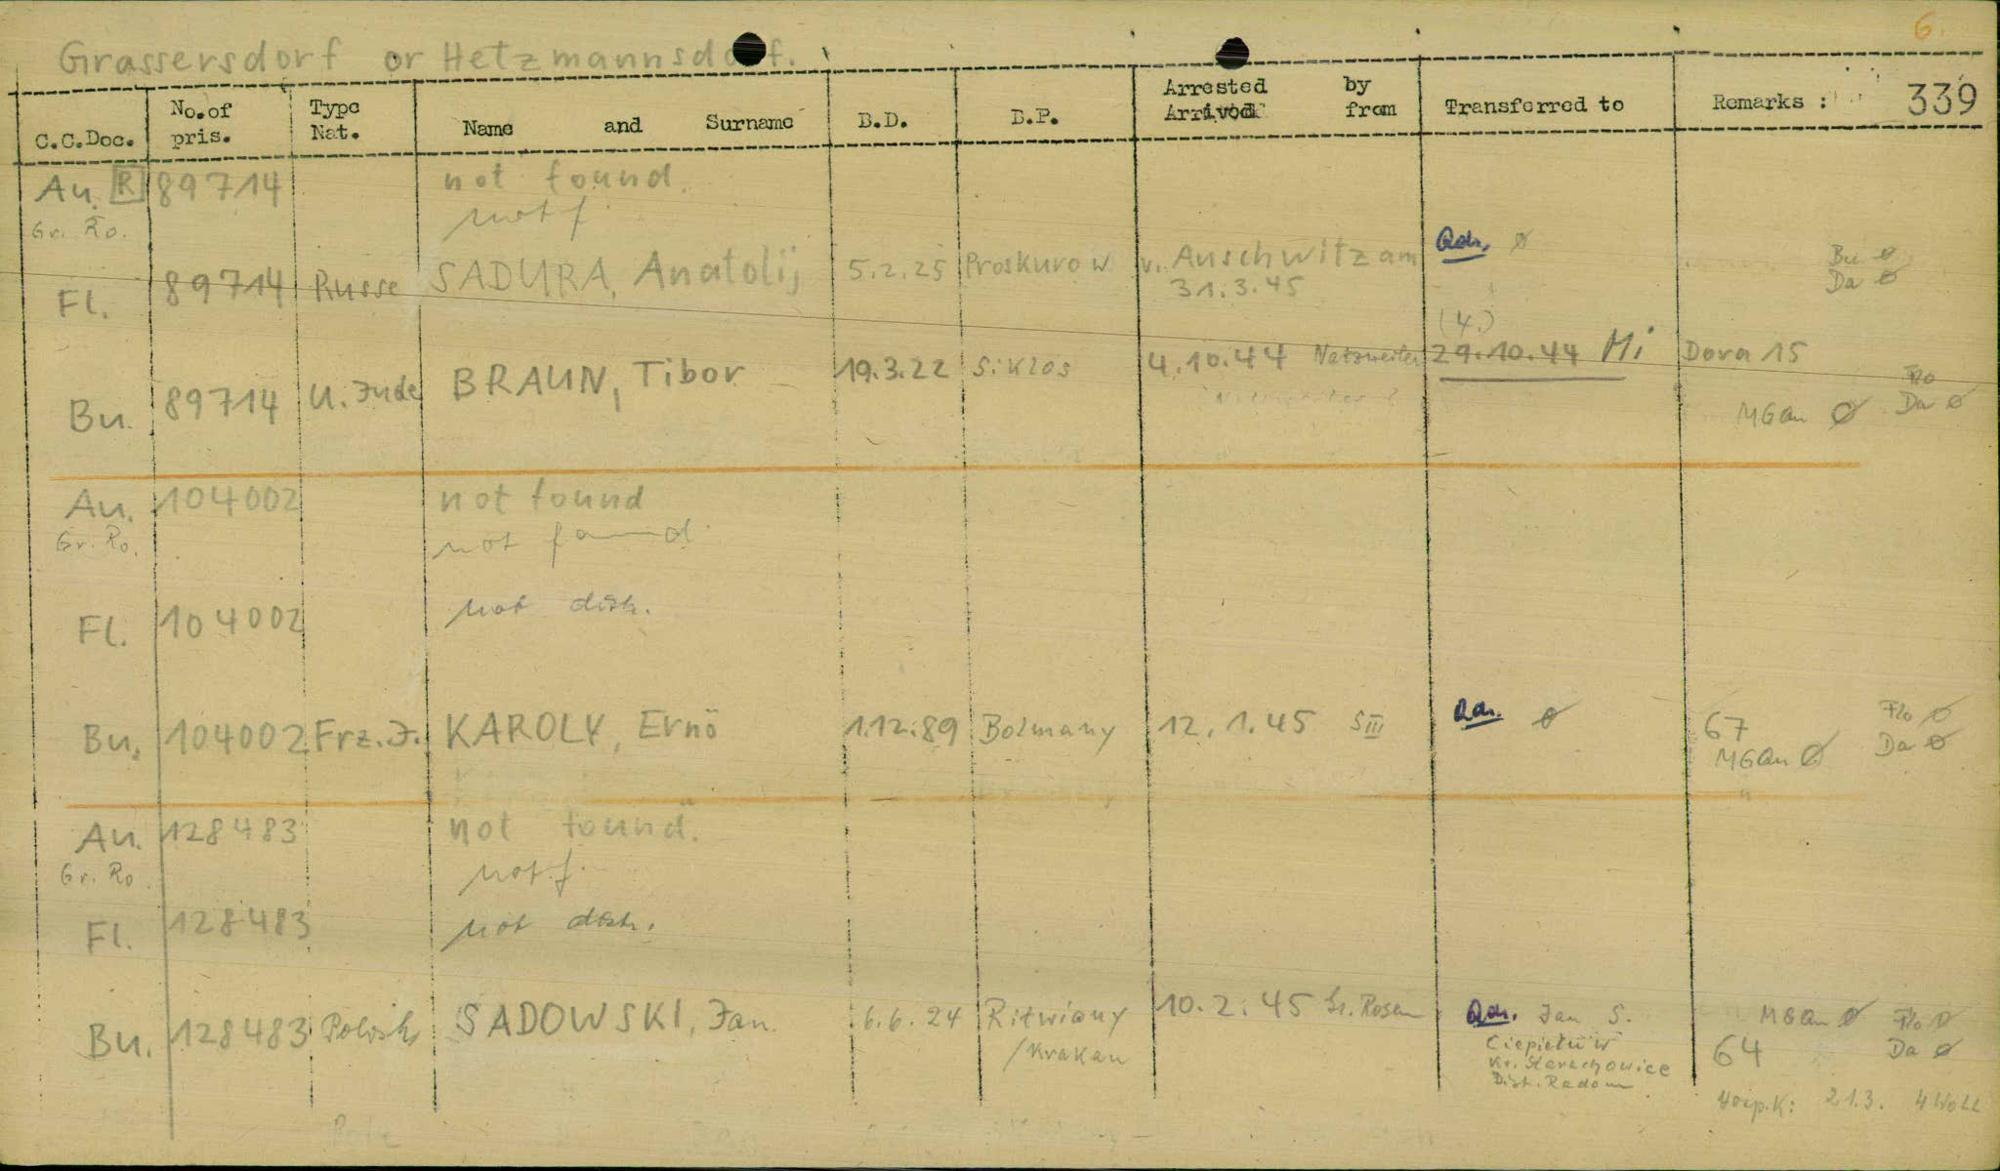 6.
Grassersdorf or Hetzmannsdorf.
C.C.Doc. No. of pris. Type Nat. Name and Surname B.D. B.P. Arrested by Arrived from Transferred to Remarks : 339
Au. R 89714 not found.
Gr. Ro. not f.
Fl. 89714 Russe SADURA, Anatolij 5.2.25 Proskurow v. Auschwitz am 31.3.45 Adr. ø Bu ø Da ø
(4.)
Bu. 89714 U. Jude BRAUN, Tibor 19.3.22 Siklos 4.10.44 Natzweiler 29.10.44 Mi Dora 15
MGAu ø Flo Da ø
Au. 104002 not found
Gr. Ro. not found
Fl. 104002 not distr.
Bu. 104002 Frz. J. KAROLY, Ernö 1.12.89 Bolmany 12.1.45 SIII Adr. ø 67 Flo ø
MGAu ø Da ø
Au. 128483 not found.
Gr. Ro. not f.
Fl. 128483 not distr.
Bu. 128483 Polisch SADOWSKI, Jan 6.6.24 Ritwiany /Krakau 10.2.45 Gr. Rosen Adr. Jan S. MGAu ø Flo ø
Ciepielów 64 Da ø
Kr. Starachowice
Distr. Radom
21.3.